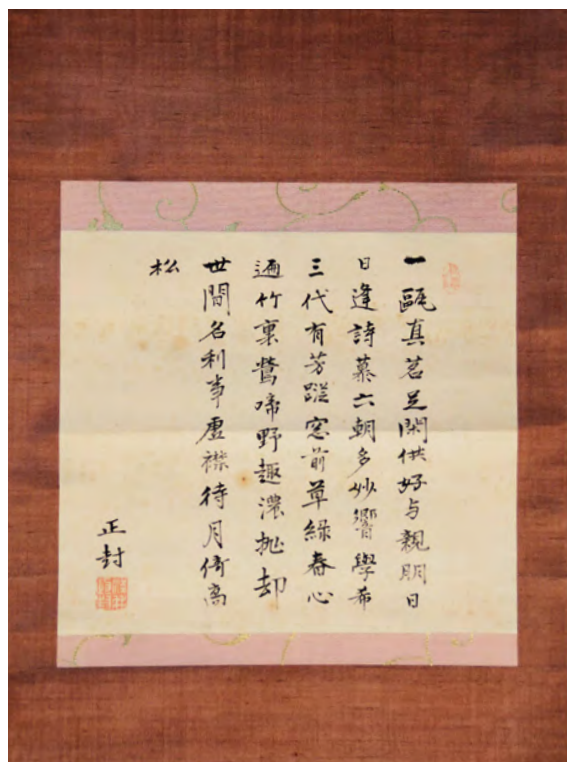 一甌真茗足閑供好与親朋日
日逢詩慕六朝多妙響學希
三代有芳蹤窓前草緑春心
遍竹裏鶯啼野趣濃抛却
世間名利事虚襟待月倚高
松
正封